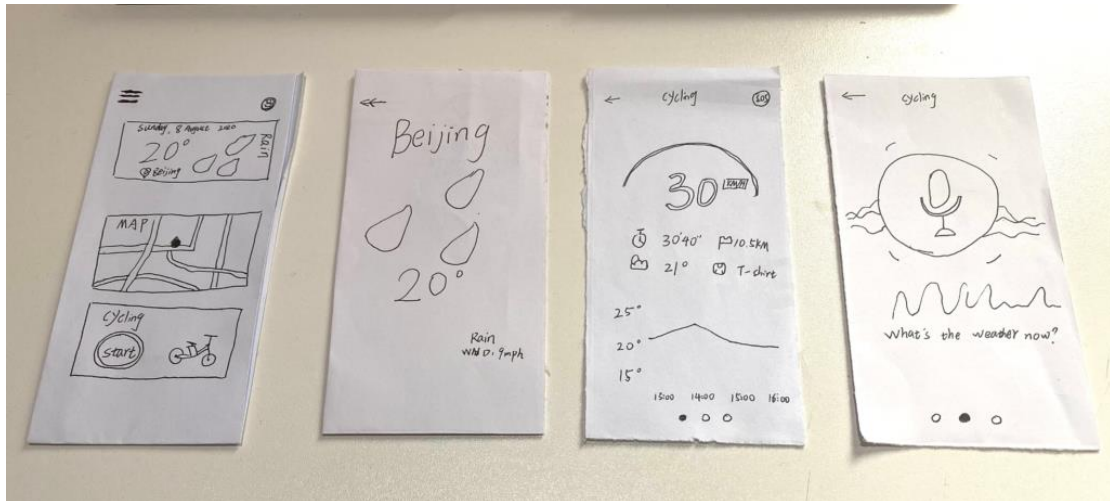 Sunday, 8 August 2020
20°
Rain
Beijing
MAP
cycling
start
Beijing
20°
Rain
cycling
SOS
30 KM/H
30'40" 10.5KM
21° T-shirt
25°
20°
15°
14:00 15:00 16:00
cycling
What's the weather now?